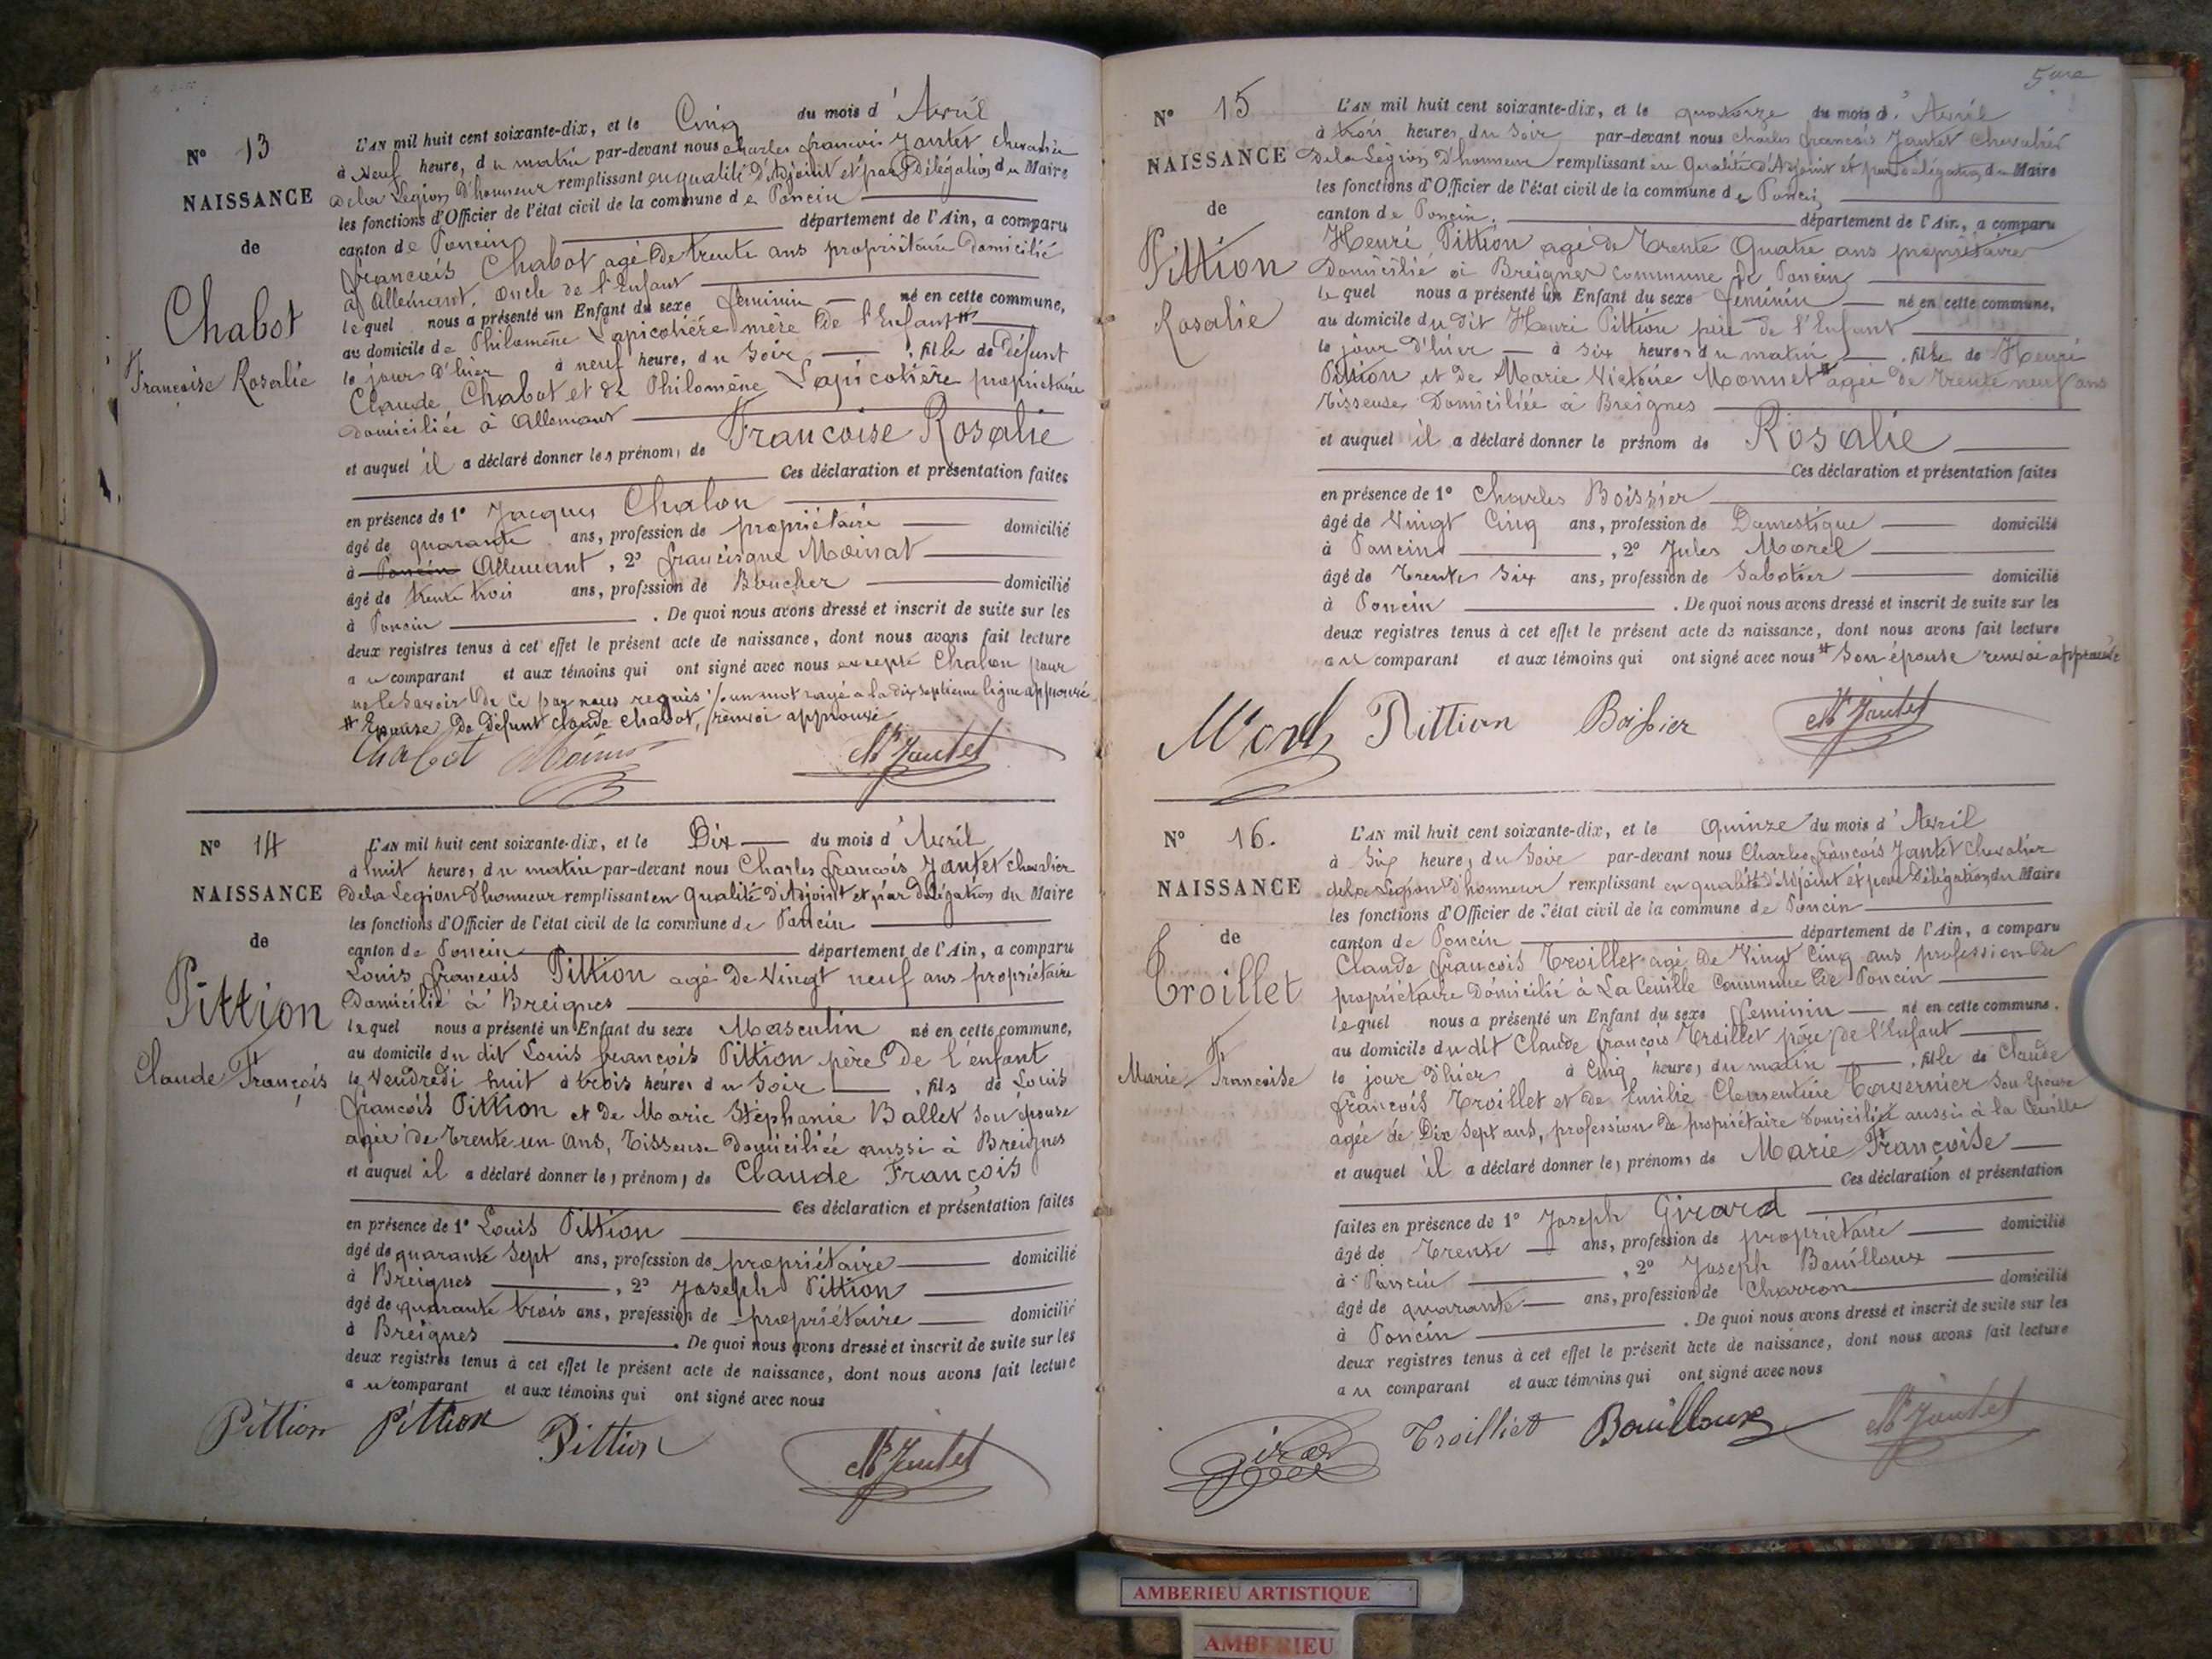 N° 13
NAISSANCE
de
Chabot
Françoise Rosalie
L'AN mil huit cent soixante-dix, et le Cinq du mois d'Avril
à Neuf heure, du matin par-devant nous Charles francois Jantet Chevalier
de la Légion D'honneur remplissant en qualité D'Adjoint et par Délégation du Maire
les fonctions d'Officier de l'état civil de la commune de Poncin
canton de Poncin département de l'Ain, a comparu
francois Chabot agé de trente ans propriétaire Domicilié
à Allemant, oncle de l'Enfant
lequel nous a présenté un Enfant du sexe feminin né en cette commune,
au domicile de Philomène Lapicotière mère de l'Enfant #
le jour D'hier à neuf heure, du Soir, fille de Défunt
Claude Chabot et de Philomène Lapicotière propriétaire
Domiciliée à Allemant
et auquel il a déclaré donner les prénoms de Françoise Rosalie
Ces déclaration et présentation faites
en présence de 1° Jacques Chalon
âgé de quarante ans, profession de propriétaire domicilié
à Poncin Allemant, 2° francisque Moinat
âgé de trente trois ans, profession de Boucher domicilié
à Poncin. De quoi nous avons dressé et inscrit de suite sur les
deux registres tenus à cet effet le présent acte de naissance, dont nous avons fait lecture
au comparant et aux témoins qui ont signé avec nous excepté Chalon pour
ne le Savoir De ce par nous requis /. un mot rayé à la dix septieme ligne approuvé
# Epouse De Défunt Claude Chabot, renvoi approuvé
Chabot Moinat Ch Jantet
N° 14
NAISSANCE
de
Pittion
Claude François
L'AN mil huit cent soixante-dix, et le Dix du mois d'Avril
à huit heures du matin par-devant nous Charles francois Jantet Chevalier
De la Legion D'honneur remplissant en Qualité D'Adjoint et par Délégation du Maire
les fonctions d'Officier de l'état civil de la commune de Poncin
canton de Poncin département de l'Ain, a comparu
Louis francois Pittion agé de Vingt neuf ans propriétaire
Domicilié à Breignes
lequel nous a présenté un Enfant du sexe Masculin né en cette commune,
au domicile du dit Louis francois Pittion père De l'enfant
le Vendredi huit à trois heures du Soir, fils de Louis
francois Pittion et de Marie Stéphanie Ballet son épouse
agée de trente un ans, Tisseuse Domiciliée aussi à Breignes
et auquel il a déclaré donner les prénoms de Claude François
Ces déclaration et présentation faites
en présence de 1° Louis Pittion
âgé de quarante Sept ans, profession de propriétaire domicilié
à Breignes, 2° Joseph Pittion
âgé de quarante trois ans, profession de propriétaire domicilié
à Breignes. De quoi nous avons dressé et inscrit de suite sur les
deux registres tenus à cet effet le présent acte de naissance, dont nous avons fait lecture
au comparant et aux témoins qui ont signé avec nous
Pittion Pittion Pittion Ch Jantet
5me
N° 15
NAISSANCE
de
Pittion
Rosalie
L'AN mil huit cent soixante-dix, et le quatorze du mois d'Avril
à trois heures du Soir par-devant nous Charles francois Jantet Chevalier
De la Légion D'honneur remplissant en Qualité D'Adjoint et par délégation du Maire
les fonctions d'Officier de l'état civil de la commune de Poncin
canton de Poncin. département de l'Ain, a comparu
Henri Pittion agé de Trente Quatre ans propriétaire
Domicilié à Breignes commune de Poncin
lequel nous a présenté un Enfant du sexe feminin né en cette commune,
au domicile du dit Henri Pittion père de l'Enfant
le jour D'hier à six heures du matin, fille de Henri
Pittion et de Marie Victoire Monnet # agée de Trente neuf ans
Tisseuse Domiciliée à Breignes
et auquel il a déclaré donner le prénom de Rosalie
Ces déclaration et présentation faites
en présence de 1° Charles Boissier
âgé de Vingt Cinq ans, profession de Domestique domicilié
à Poncin, 2° Jules Morel
âgé de Trente Six ans, profession de Sabotier domicilié
à Poncin. De quoi nous avons dressé et inscrit de suite sur les
deux registres tenus à cet effet le présent acte de naissance, dont nous avons fait lecture
au comparant et aux témoins qui ont signé avec nous # Son épouse renvoi approuvé
Morel Pittion Boissier Ch Jantet
N° 16.
NAISSANCE
de
Troillet
Marie Françoise
L'AN mil huit cent soixante-dix, et le Quinze du mois d'Avril
à Six heure, du Soir par-devant nous Charles françois Jantet Chevalier
de la Légion D'honneur remplissant en qualité d'Adjoint et par Délégation du Maire
les fonctions d'Officier de l'état civil de la commune de Poncin
canton de Poncin département de l'Ain, a comparu
Claude françois Troillet agé de Vingt Cinq ans profession de
propriétaire Domicilié à La Cueille Commune De Poncin
lequel nous a présenté un Enfant du sexe feminin né en cette commune.
au domicile du dit Claude françois Troillet père de l'Enfant
le jour d'hier à Cinq heure, du matin, fille de Claude
françois Troillet et de Emilie Clementine Tavernier Son Epouse
agée de Dix Sept ans, profession de propriétaire Domiciliée aussi à la Cueille
et auquel il a déclaré donner les prénoms de Marie Françoise
Ces déclaration et présentation
faites en présence de 1° Joseph Girard
âgé de Trente ans, profession de propriétaire domicilié
à Poncin, 2° Joseph Bouilloux
âgé de quarante ans, profession de Charron domicilié
à Poncin. De quoi nous avons dressé et inscrit de suite sur les
deux registres tenus à cet effet le présent acte de naissance, dont nous avons fait lecture
au comparant et aux témoins qui ont signé avec nous
Girard Troilliet Bouilloux Ch Jantet
AMBERIEU ARTISTIQUE
AMBERIEU